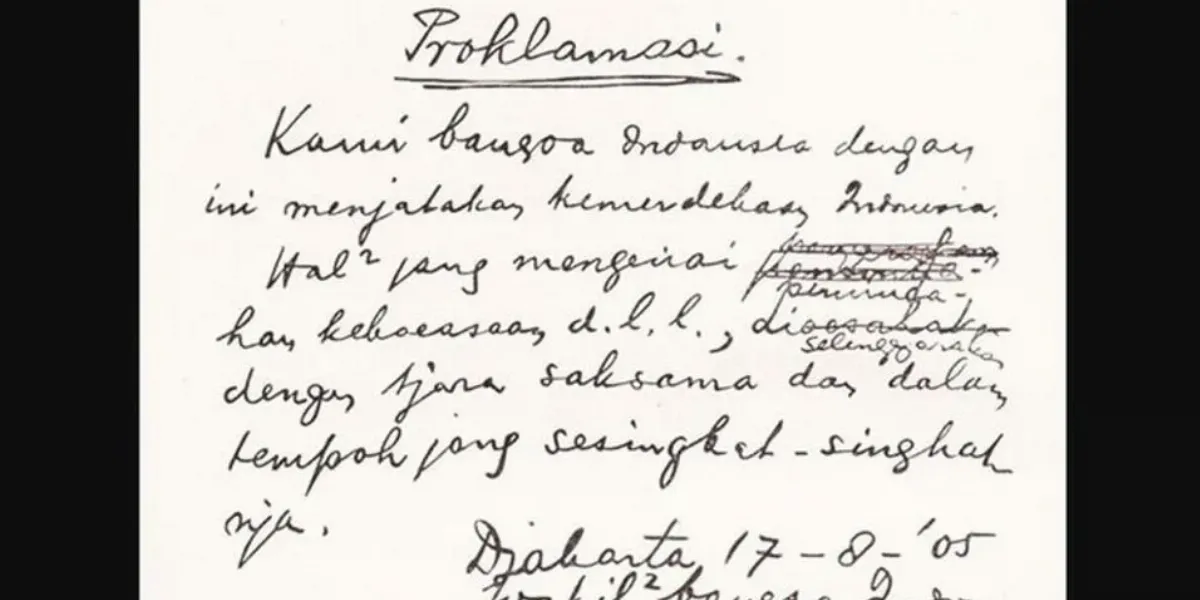 Proklamasi.
Kami bangsa Indonesia dengan
ini menjatakan kemerdekaan Indonesia.
Hal² jang mengenai
peminda-
han kekoeasaan d.l.l.,
selenggarakan
dengan tjara saksama dan dalam
tempoh jang sesingkat-singkat
nja.
Djakarta 17-8-'05
Wakil² bangsa